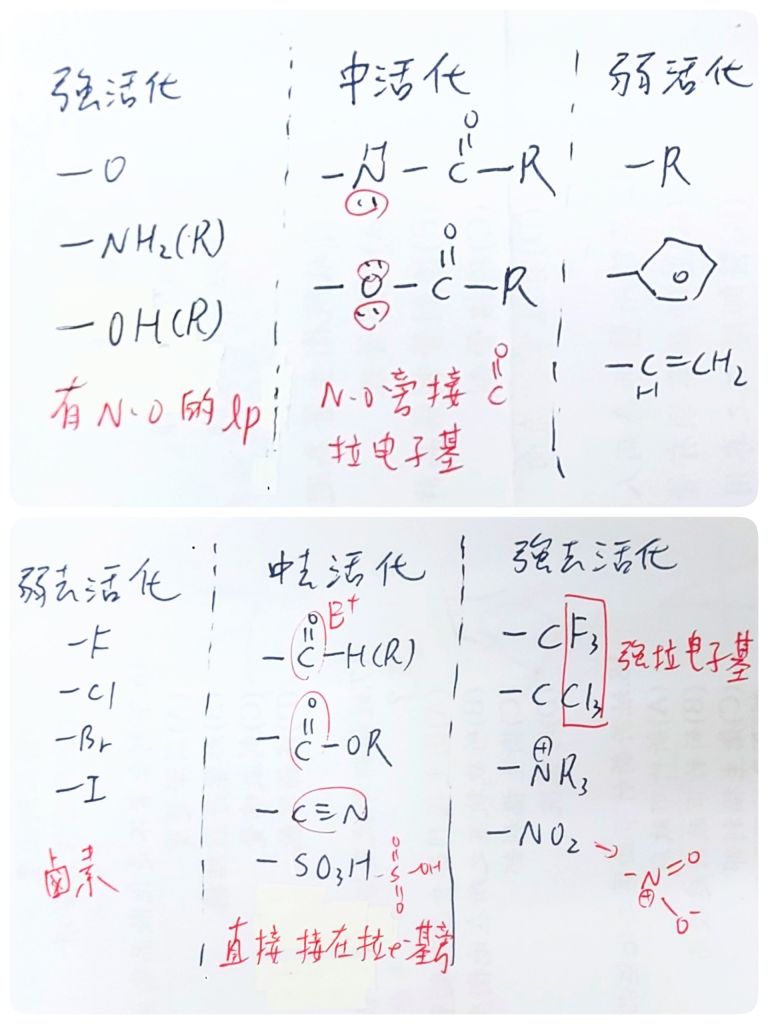 强活化
—O
—NH₂(R)
—OH(R)
有N、O的lp
中活化
H
O
—N—C—R
O
—O—C—R
N、O旁接
O
C
拉电子基
弱活化
—R
—C=CH₂
H
弱去活化
—F
—Cl
—Br
—I
鹵素
中去活化
O
E⁺
—C—H(R)
O
—C—OR
—C≡N
—SO₃H
O
S—OH
O
直接接在拉e⁻基旁
强去活化
—CF₃
—CCl₃
强拉电子基
⊕
—NR₃
—NO₂→
—N=O
⊕
O⁻